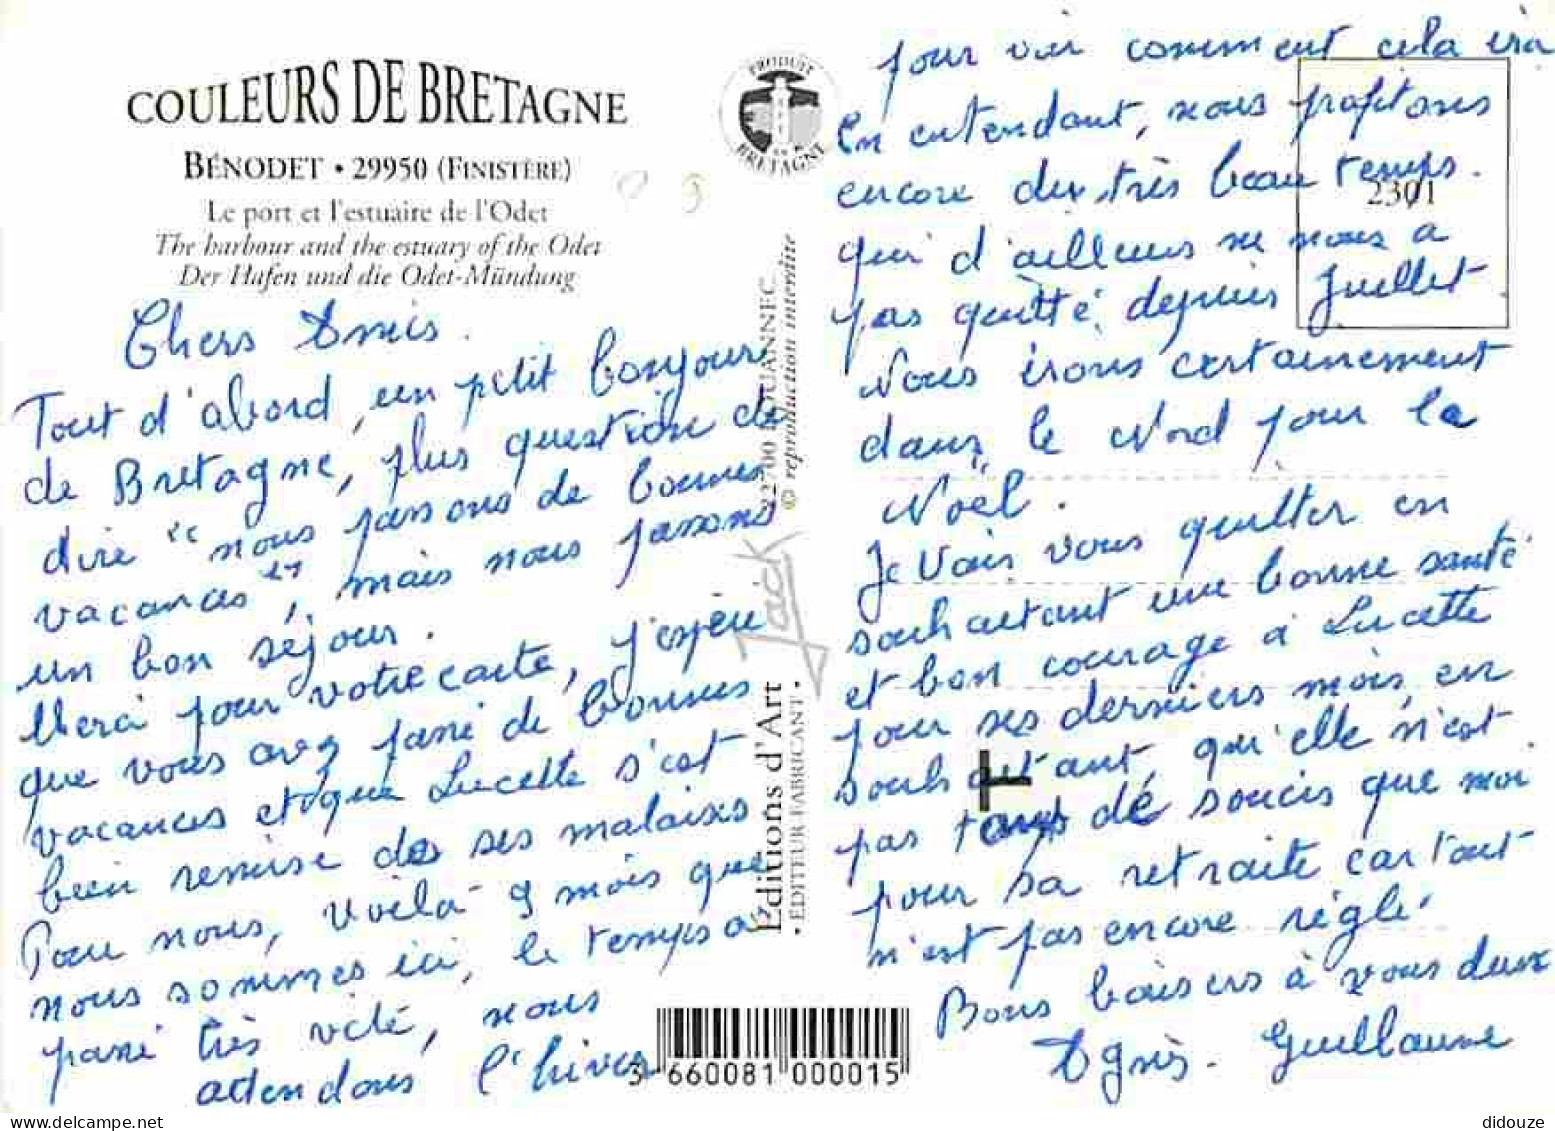 COULEURS DE BRETAGNE
BÉNODET • 29950 (FINISTÈRE)
Le port et l'estuaire de l'Odet
The harbour and the estuary of the Odet
Der Hafen und die Odet-Mündung
PRODUIT EN BRETAGNE
Chers Amis.
Tout d'abord, un p'tit bonjour
de Bretagne, plus question de
dire "nous passons de bonnes
vacances", mais nous passons
un bon séjour.
Merci pour votre carte, j'espère
que vous avez passé de bonnes
vacances et que Lucette s'est
bien remise de ses malaises
Pour nous, voilà 9 mois que
nous sommes ici, le temps a
passé très vite, nous
attendons l'hiver
22700 LOUANNEC
© reproduction interdite
Jack
Editions d'Art
• EDITEUR FABRICANT •
3 660081 000015
pour voir comment cela ira
En entendant, nous profitons
encore du très beau temps.
qui d'ailleurs ne nous a
pas quitté depuis Juillet
Nous irons certainement
dans le Nord pour la
Noël.
Je vais vous quitter en
souhaitant une bonne santé
et bon courage à Lucette
pour ses derniers mois, en
souhaitant, qu'elle n'est
pas tant de soucis que moi
pour sa retraite car tout
n'est pas encore réglé.
Bons baisers à vous deux
Agnès. Guillaume
2301
didouze